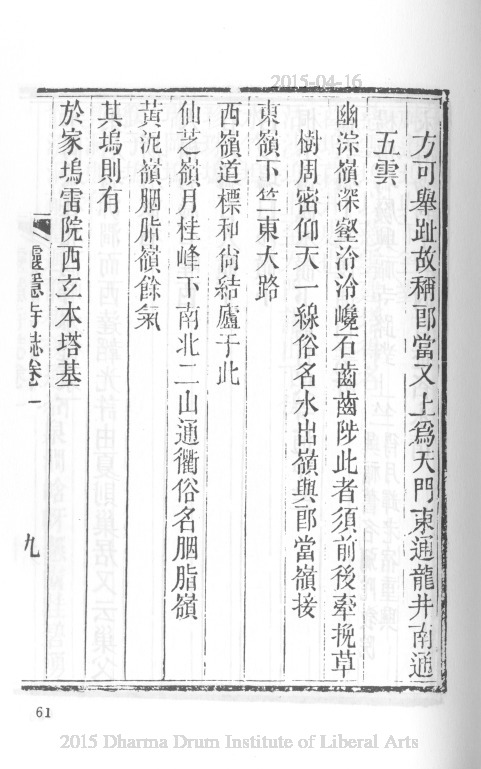 2015-04-16
方可舉趾故稱郎當又上爲天門東通龍井南通
五雲
幽淙嶺深壑泠泠巉石齒齒陟此者須前後牽挽草
樹周密仰天一線俗名水出嶺與郎當嶺接
東嶺下竺東大路
西嶺道標和尙結廬于此
仙芝嶺月桂峰下南北二山通衢俗名胭脂嶺
黃泥嶺胭脂嶺餘氣
其塢則有
於家塢雷院西玄本塔基
靈隱寺誌卷一
九
61
2015 Dharma Drum Institute of Liberal Arts